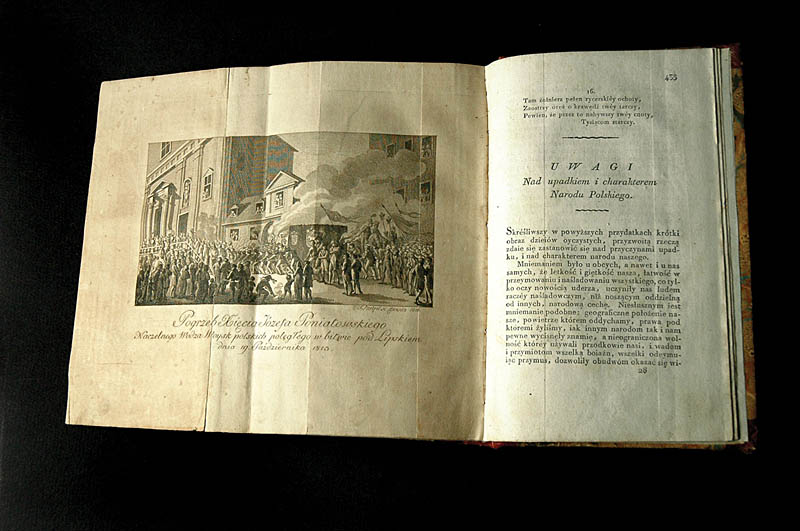 Pogrzeb Xięcia Józefa Poniatowskiego
Naczelnego Wodza Woysk polskich poległego w bitwie pod Lipskiem
dnia 19. Października 1813.
433
16.
Tam żołnierz pełen rycerskiéy ochoty,
Zaostrzy oręż o krawędź twéy tarczy,
Powien, że przez to nabywszy twéy cnoty,
Tysiącom starczy.
UWAGI
Nad upadkiem i charakterem
Narodu Polskiego.
Skréśliwszy w powyższych przydatkach krótki
obraz dzieiów oyczystych, przyzwoitą rzeczą
zdaie się zastanowić się nad przyczynami upad-
ku, i nad charakterem narodu naszego.
Mniemaniem było u obcych, a nawet i u nas
samych, że letkość i giętkość nasza, łatwość w
przeymowaniu i naśladowaniu wszystkiego, co tyl-
ko oczy nowością uderza, uczyniły nas ludem
raczéy naśladowczym, niż noszącym oddzielną
od innych, narodową cechę. Niesłusznym iest
mniemanie podobne; geograficzne położenie na-
sze, powietrze którem oddychamy, prawa pod
któremi żyliśmy, iak innym narodom tak i nam
pewne wycisnęły znamię, a nieograniczona wol-
ność któréy używali przodkowie nasi, i wadom
i przymiotom wszelka boiaźń, wszelki odeymu-
iąc przymus, dozwoliły obudwóm okazać się wi-
28